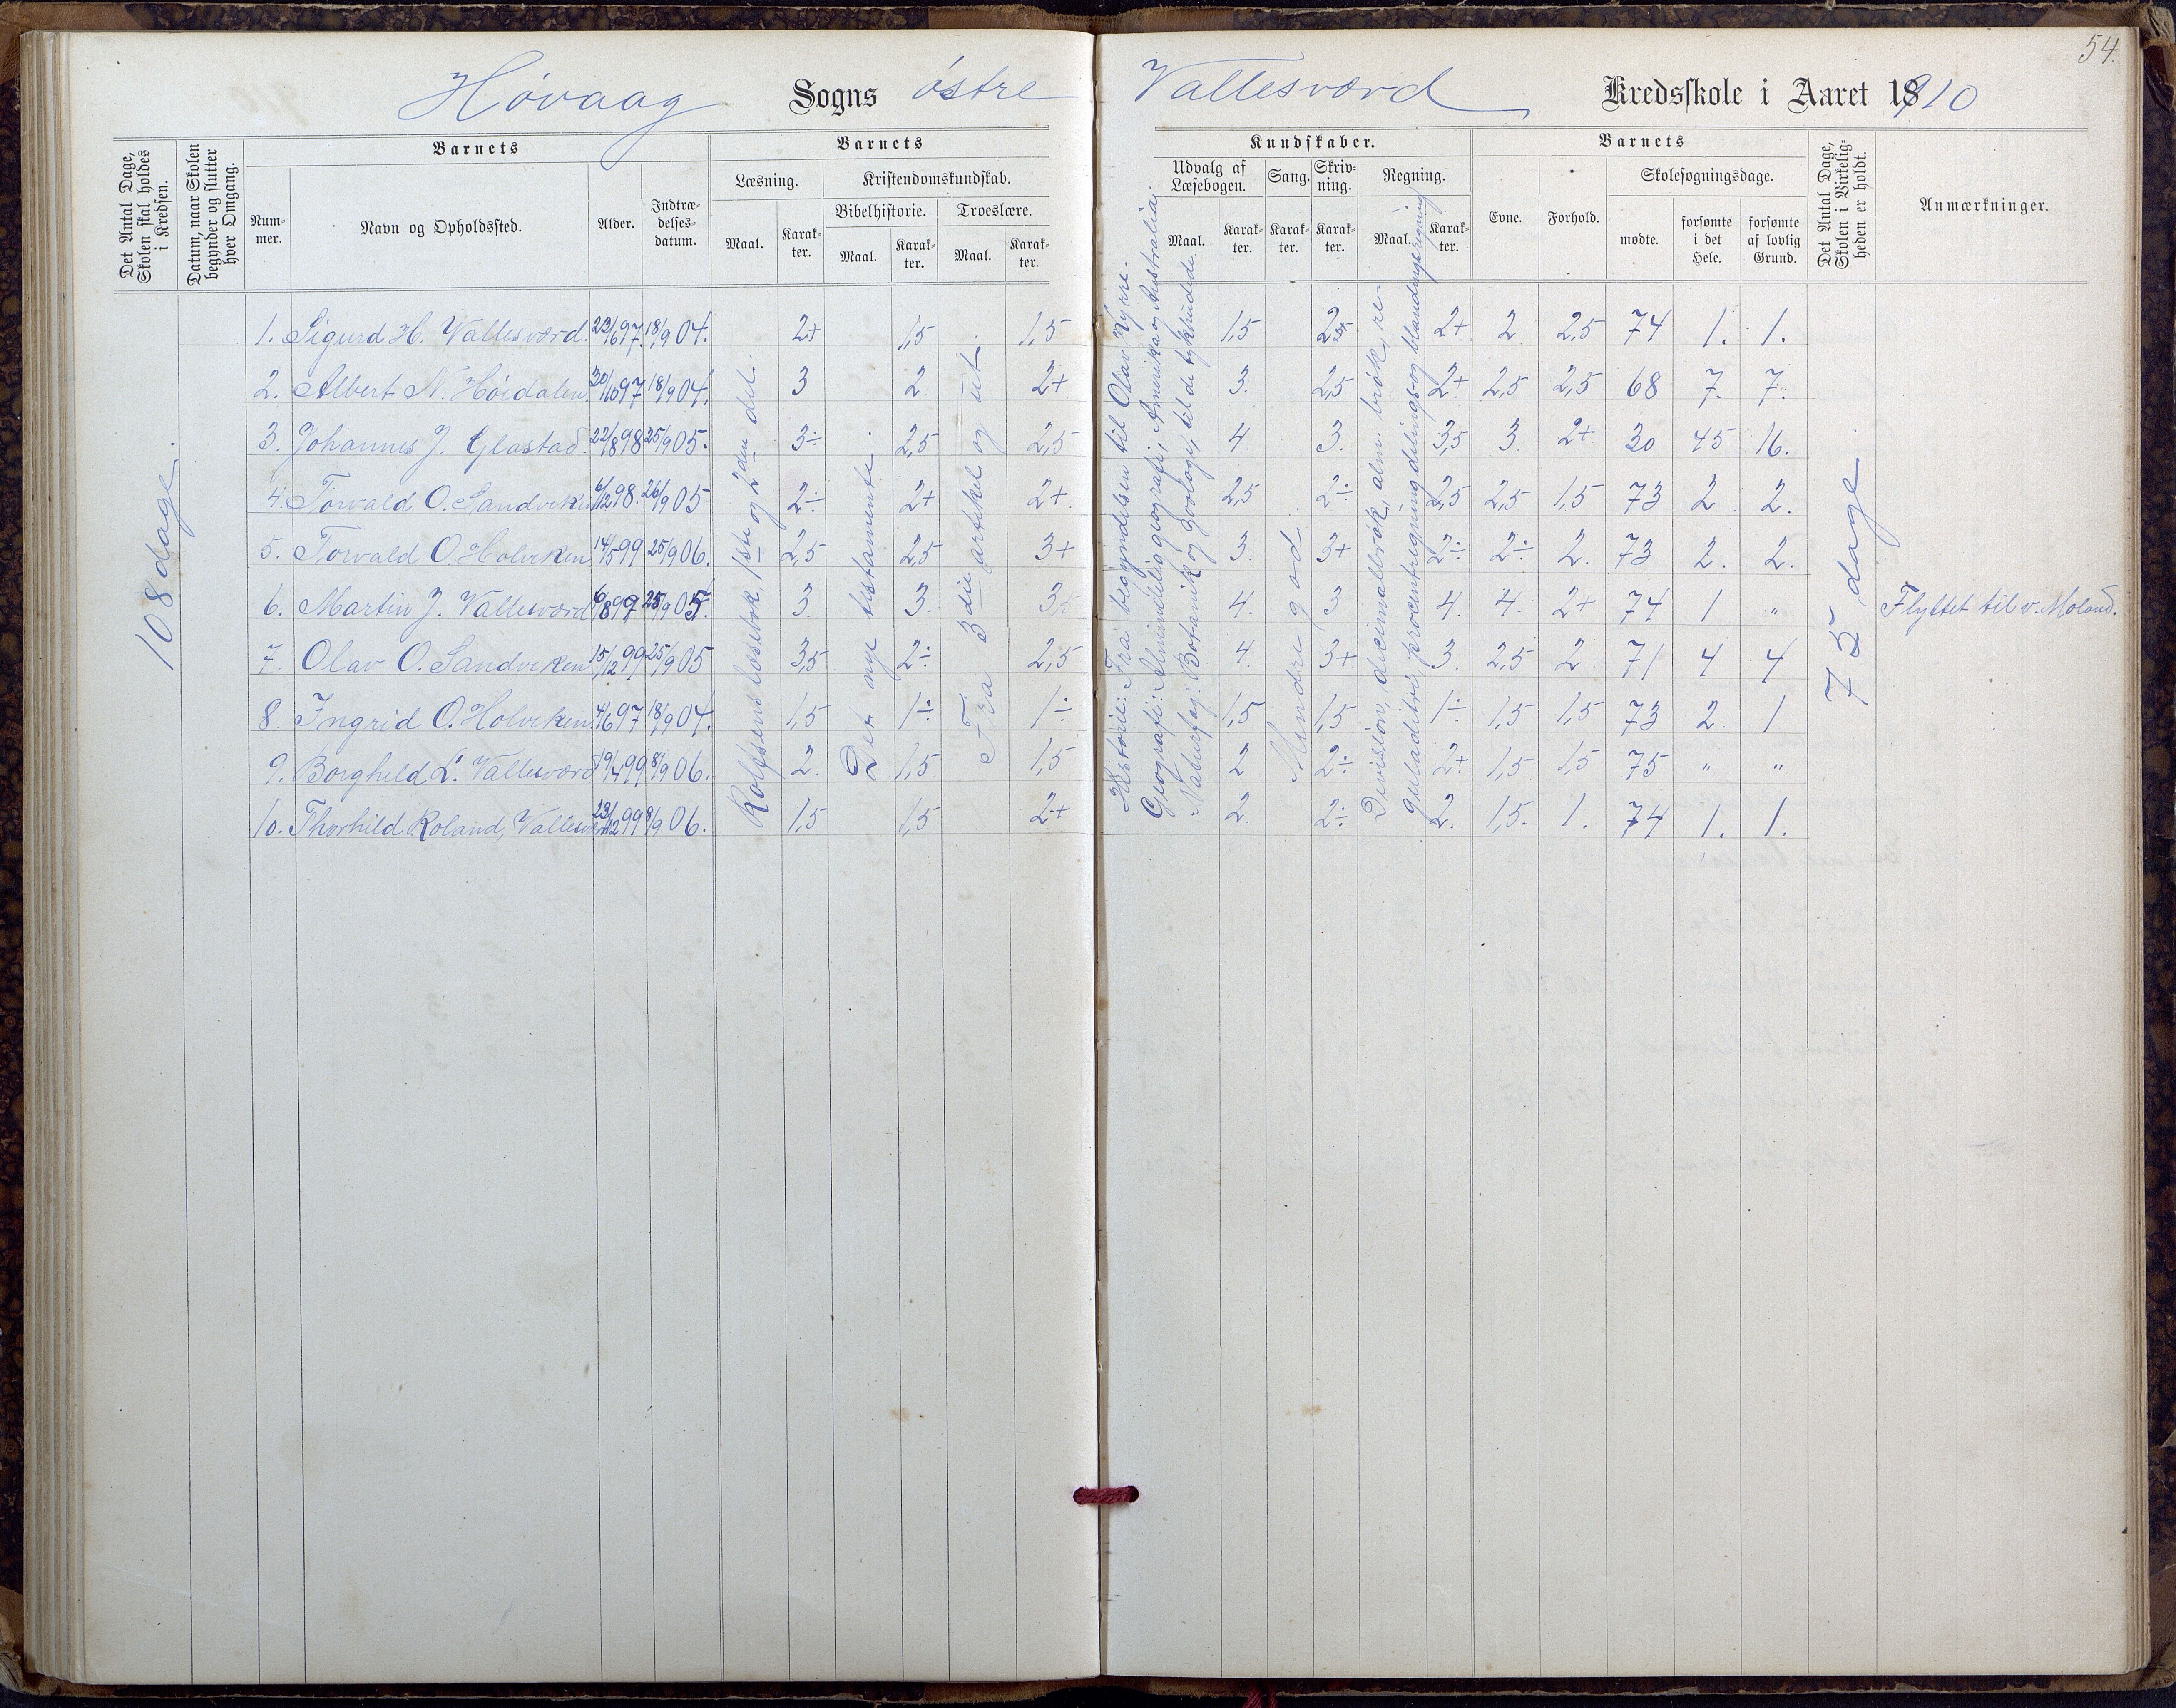 54.
Høvaag Sogns østre Vallesværd Kredsskole i Aaret 18910
Det Antal Dage, Skolen skal holdes i Kredsen.
Datum, naar Skolen begynder og slutter hver Omgang.
Barnets
Nummer.
Navn og Opholdssted.
Alder.
Indtrædelsesdatum.
Barnets Kundskaber.
Læsning.
Maal.
Karakter.
Kristendomskundskab.
Bibelhistorie.
Maal.
Karakter.
Troeslære.
Maal.
Karakter.
Udvalg af Læsebogen.
Maal.
Karakter.
Sang.
Karakter.
Skrivning.
Karakter.
Regning.
Maal.
Karakter.
Barnets
Evne.
Forhold.
Skolesøgningsdage.
mødte.
forsømte i det Hele.
forsømte af lovlig Grund.
Det Antal Dage, Skolen i Virkeligheden er holdt.
Anmærkninger.
108 dage.
Rolfsens læsebok, 1ste og 2den del.
Det nye testamente.
Fra 3die artikel og ut.
Historie: Fra begyndelsen til Olav Kyrre.
Geografi: Almindelig geografi, Amerika og Australia.
Naturfag: Botanik og Zoologi, til de tykhudede.
Mindre god
Division, decimalbrøk, alm. brøk, re-
guladitri, procentregning, delings- og blandingsregning
75 dage.
1. Sigurd H. Vallesværd. 23/6 97. 18/9 04. 2+ 1,5 1,5 1,5 2+ 2 2,5 74 1. 1.
2. Albert N. Høidalen. 30/10 97 18/9 04. 3 2. 2+ 3. 2,5 2+ 2,5 2,5 68 7. 7.
3. Johannes J. Glastad. 22/8 98 25/9 05. 3÷ 2,5 2,5 4. 3. 3,5 3. 2+ 30 45 16.
4. Torvald O. Sandviken 6/12 98. 26/9 05 2÷ 2+ 2+ 2,5 2÷ 2,5 2,5 1,5 73 2 2.
5. Torvald O. Holviken 14/5 99 25/9 06. 2,5 2,5 3+ 3. 3+ 2÷ 2÷ 2. 73 2. 2.
6. Martin J. Vallesværd 6/8 97 25/9 05. 3. 3. 4. 3 4. 4. 2+ 74 1 " Flyttet til v. Moland.
7. Olav O. Sandviken 15/12 99 25/9 05 3,5 2÷ 2,5 4. 3+ 3. 2,5 2 71 4 4
8. Ingrid O. Holviken. 4/6 97 18/9 04. 1,5 1÷ 1÷ 1,5 1,5 1÷ 1,5 1,5 73 2. 1
9. Borghild L. Vallesværd 19/4 99 8/9 06. 2. 1,5 1,5 2 2÷ 2+ 1,5 1,5 75 " "
10. Thorhild Roland, Vallesværd 23/12 99 8/9 06. 1,5 1,5 2+ 2. 2÷ 2. 1,5. 1. 74 1. 1.